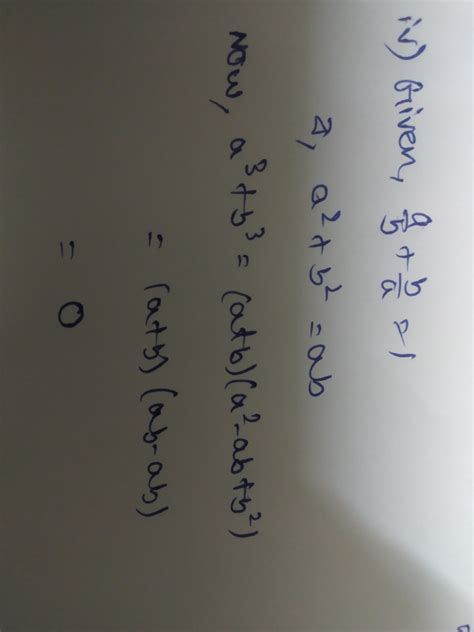 iv) Given, a/b + b/a = 1
⇒, a² + b² = ab
Now, a³ + b³ = (a+b)(a² - ab + b²)
= (a+b) (ab - ab)
= 0